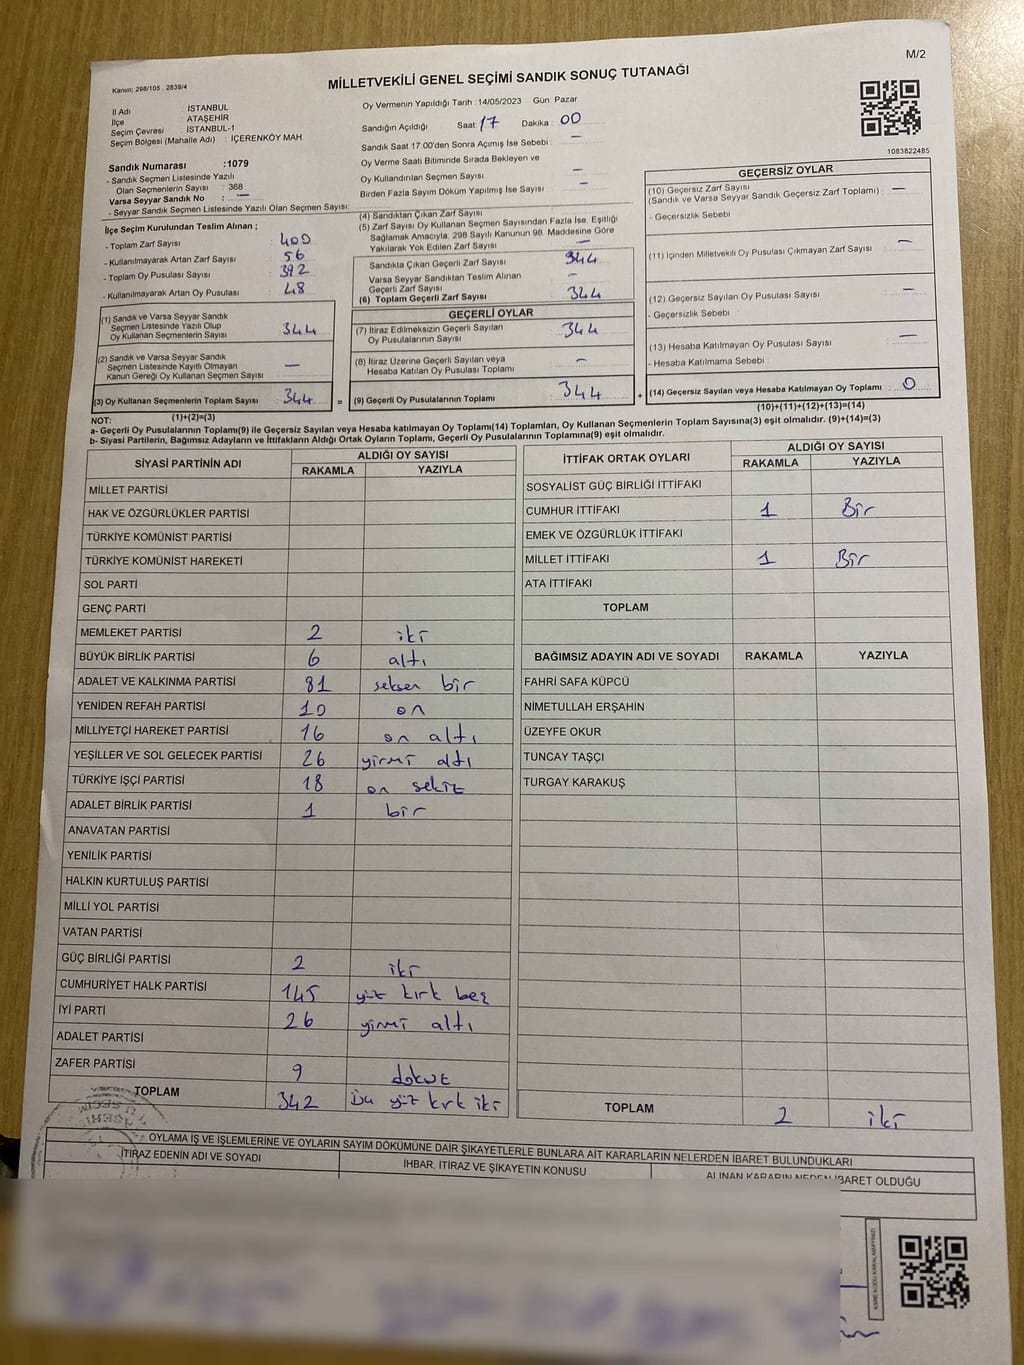 M/2
Kanun; 298/105 . 2839/4
MİLLETVEKİLİ GENEL SEÇİMİ SANDIK SONUÇ TUTANAĞI
İl Adı İSTANBUL
İlçe ATAŞEHİR
Seçim Çevresi İSTANBUL-1
Seçim Bölgesi (Mahalle Adı) : İÇERENKÖY MAH.
Sandık Numarası :1079
- Sandık Seçmen Listesinde Yazılı
Olan Seçmenlerin Sayısı : 368
Varsa Seyyar Sandık No : —
- Seyyar Sandık Seçmen Listesinde Yazılı Olan Seçmen Sayısı:
İlçe Seçim Kurulundan Teslim Alınan ;
- Toplam Zarf Sayısı : 400
- Kullanılmayarak Artan Zarf Sayısı : 56
- Toplam Oy Pusulası Sayısı : 392
- Kullanılmayarak Artan Oy Pusulası : 48
(1) Sandık ve Varsa Seyyar Sandık
Seçmen Listesinde Yazılı Olup
Oy Kullanan Seçmenlerin Sayısı : 344
(2) Sandık ve Varsa Seyyar Sandık
Seçmen Listesinde Kayıtlı Olmayan
Kanun Gereği Oy Kullanan Seçmen Sayısı : —
(3) Oy Kullanan Seçmenlerin Toplam Sayısı : 344
(1)+(2)=(3)
Oy Vermenin Yapıldığı Tarih : 14/05/2023 Gün Pazar
Sandığın Açıldığı Saat : 17 Dakika : 00
Sandık Saat 17.00'den Sonra Açımış İse Sebebi : —
Oy Verme Saati Bitiminde Sırada Bekleyen ve
Oy Kullandırılan Seçmen Sayısı : —
Birden Fazla Sayım Döküm Yapılmış İse Sayısı : —
(4) Sandıktan Çıkan Zarf Sayısı
(5) Zarf Sayısı Oy Kullanan Seçmen Sayısından Fazla İse, Eşitliği
Sağlamak Amacıyla, 298 Sayılı Kanunun 98. Maddesine Göre
Yakılarak Yok Edilen Zarf Sayısı : —
Sandıkta Çıkan Geçerli Zarf Sayısı : 344
Varsa Seyyar Sandıktan Teslim Alınan
Geçerli Zarf Sayısı : —
(6) Toplam Geçerli Zarf Sayısı : 344
GEÇERLİ OYLAR
(7) İtiraz Edilmeksizin Geçerli Sayılan
Oy Pusulalarının Sayısı : 344
(8) İtiraz Üzerine Geçerli Sayılan veya
Hesaba Katılan Oy Pusulası Toplamı : —
= (9) Geçerli Oy Pusulalarının Toplamı : 344
1083822485
GEÇERSİZ OYLAR
(10) Geçersiz Zarf Sayısı
(Sandık ve Varsa Seyyar Sandık Geçersiz Zarf Toplamı) : —
- Geçersizlik Sebebi
(11) İçinden Milletvekili Oy Pusulası Çıkmayan Zarf Sayısı : —
(12) Geçersiz Sayılan Oy Pusulası Sayısı : —
- Geçersizlik Sebebi
(13) Hesaba Katılmayan Oy Pusulası Sayısı : —
- Hesaba Katılmama Sebebi :
+ (14) Geçersiz Sayılan veya Hesaba Katılmayan Oy Toplamı : 0
(10)+(11)+(12)+(13)=(14)
NOT:
a- Geçerli Oy Pusulalarının Toplamı(9) ile Geçersiz Sayılan veya Hesaba katılmayan Oy Toplamı(14) Toplamları, Oy Kullanan Seçmenlerin Toplam Sayısına(3) eşit olmalıdır. (9)+(14)=(3)
b- Siyasi Partilerin, Bağımsız Adayların ve İttifakların Aldığı Ortak Oyların Toplamı, Geçerli Oy Pusulalarının Toplamına(9) eşit olmalıdır.
SİYASİ PARTİNİN ADI ALDIĞI OY SAYISI
RAKAMLA YAZIYLA
MİLLET PARTİSİ
HAK VE ÖZGÜRLÜKLER PARTİSİ
TÜRKİYE KOMÜNİST PARTİSİ
TÜRKİYE KOMÜNİST HAREKETİ
SOL PARTİ
GENÇ PARTİ
MEMLEKET PARTİSİ 2 iki
BÜYÜK BİRLİK PARTİSİ 6 altı
ADALET VE KALKINMA PARTİSİ 81 seksen bir
YENİDEN REFAH PARTİSİ 10 on
MİLLİYETÇİ HAREKET PARTİSİ 16 on altı
YEŞİLLER VE SOL GELECEK PARTİSİ 26 yirmi altı
TÜRKİYE İŞÇİ PARTİSİ 18 on sekiz
ADALET BİRLİK PARTİSİ 1 bir
ANAVATAN PARTİSİ
YENİLİK PARTİSİ
HALKIN KURTULUŞ PARTİSİ
MİLLİ YOL PARTİSİ
VATAN PARTİSİ
GÜÇ BİRLİĞİ PARTİSİ 2 iki
CUMHURİYET HALK PARTİSİ 145 yüz kırk beş
İYİ PARTİ 26 yirmi altı
ADALET PARTİSİ
ZAFER PARTİSİ 9 dokuz
TOPLAM 342 üç yüz kırk iki
İTTİFAK ORTAK OYLARI ALDIĞI OY SAYISI
RAKAMLA YAZIYLA
SOSYALİST GÜÇ BİRLİĞİ İTTİFAKI
CUMHUR İTTİFAKI 1 Bir
EMEK VE ÖZGÜRLÜK İTTİFAKI
MİLLET İTTİFAKI 1 Bir
ATA İTTİFAKI
TOPLAM
BAĞIMSIZ ADAYIN ADI VE SOYADI RAKAMLA YAZIYLA
FAHRİ SAFA KÜPCÜ
NİMETULLAH ERŞAHİN
ÜZEYFE OKUR
TUNCAY TAŞÇI
TURGAY KARAKUŞ
TOPLAM 2 iki
OYLAMA İŞ VE İŞLEMLERİNE VE OYLARIN SAYIM DÖKÜMÜNE DAİR ŞİKAYETLERLE BUNLARA AİT KARARLARIN NELERDEN İBARET BULUNDUKLARI
İTİRAZ EDENİN ADI VE SOYADI İHBAR, İTİRAZ VE ŞİKAYETİN KONUSU ALINAN KARARIN NEDEN İBARET OLDUĞU